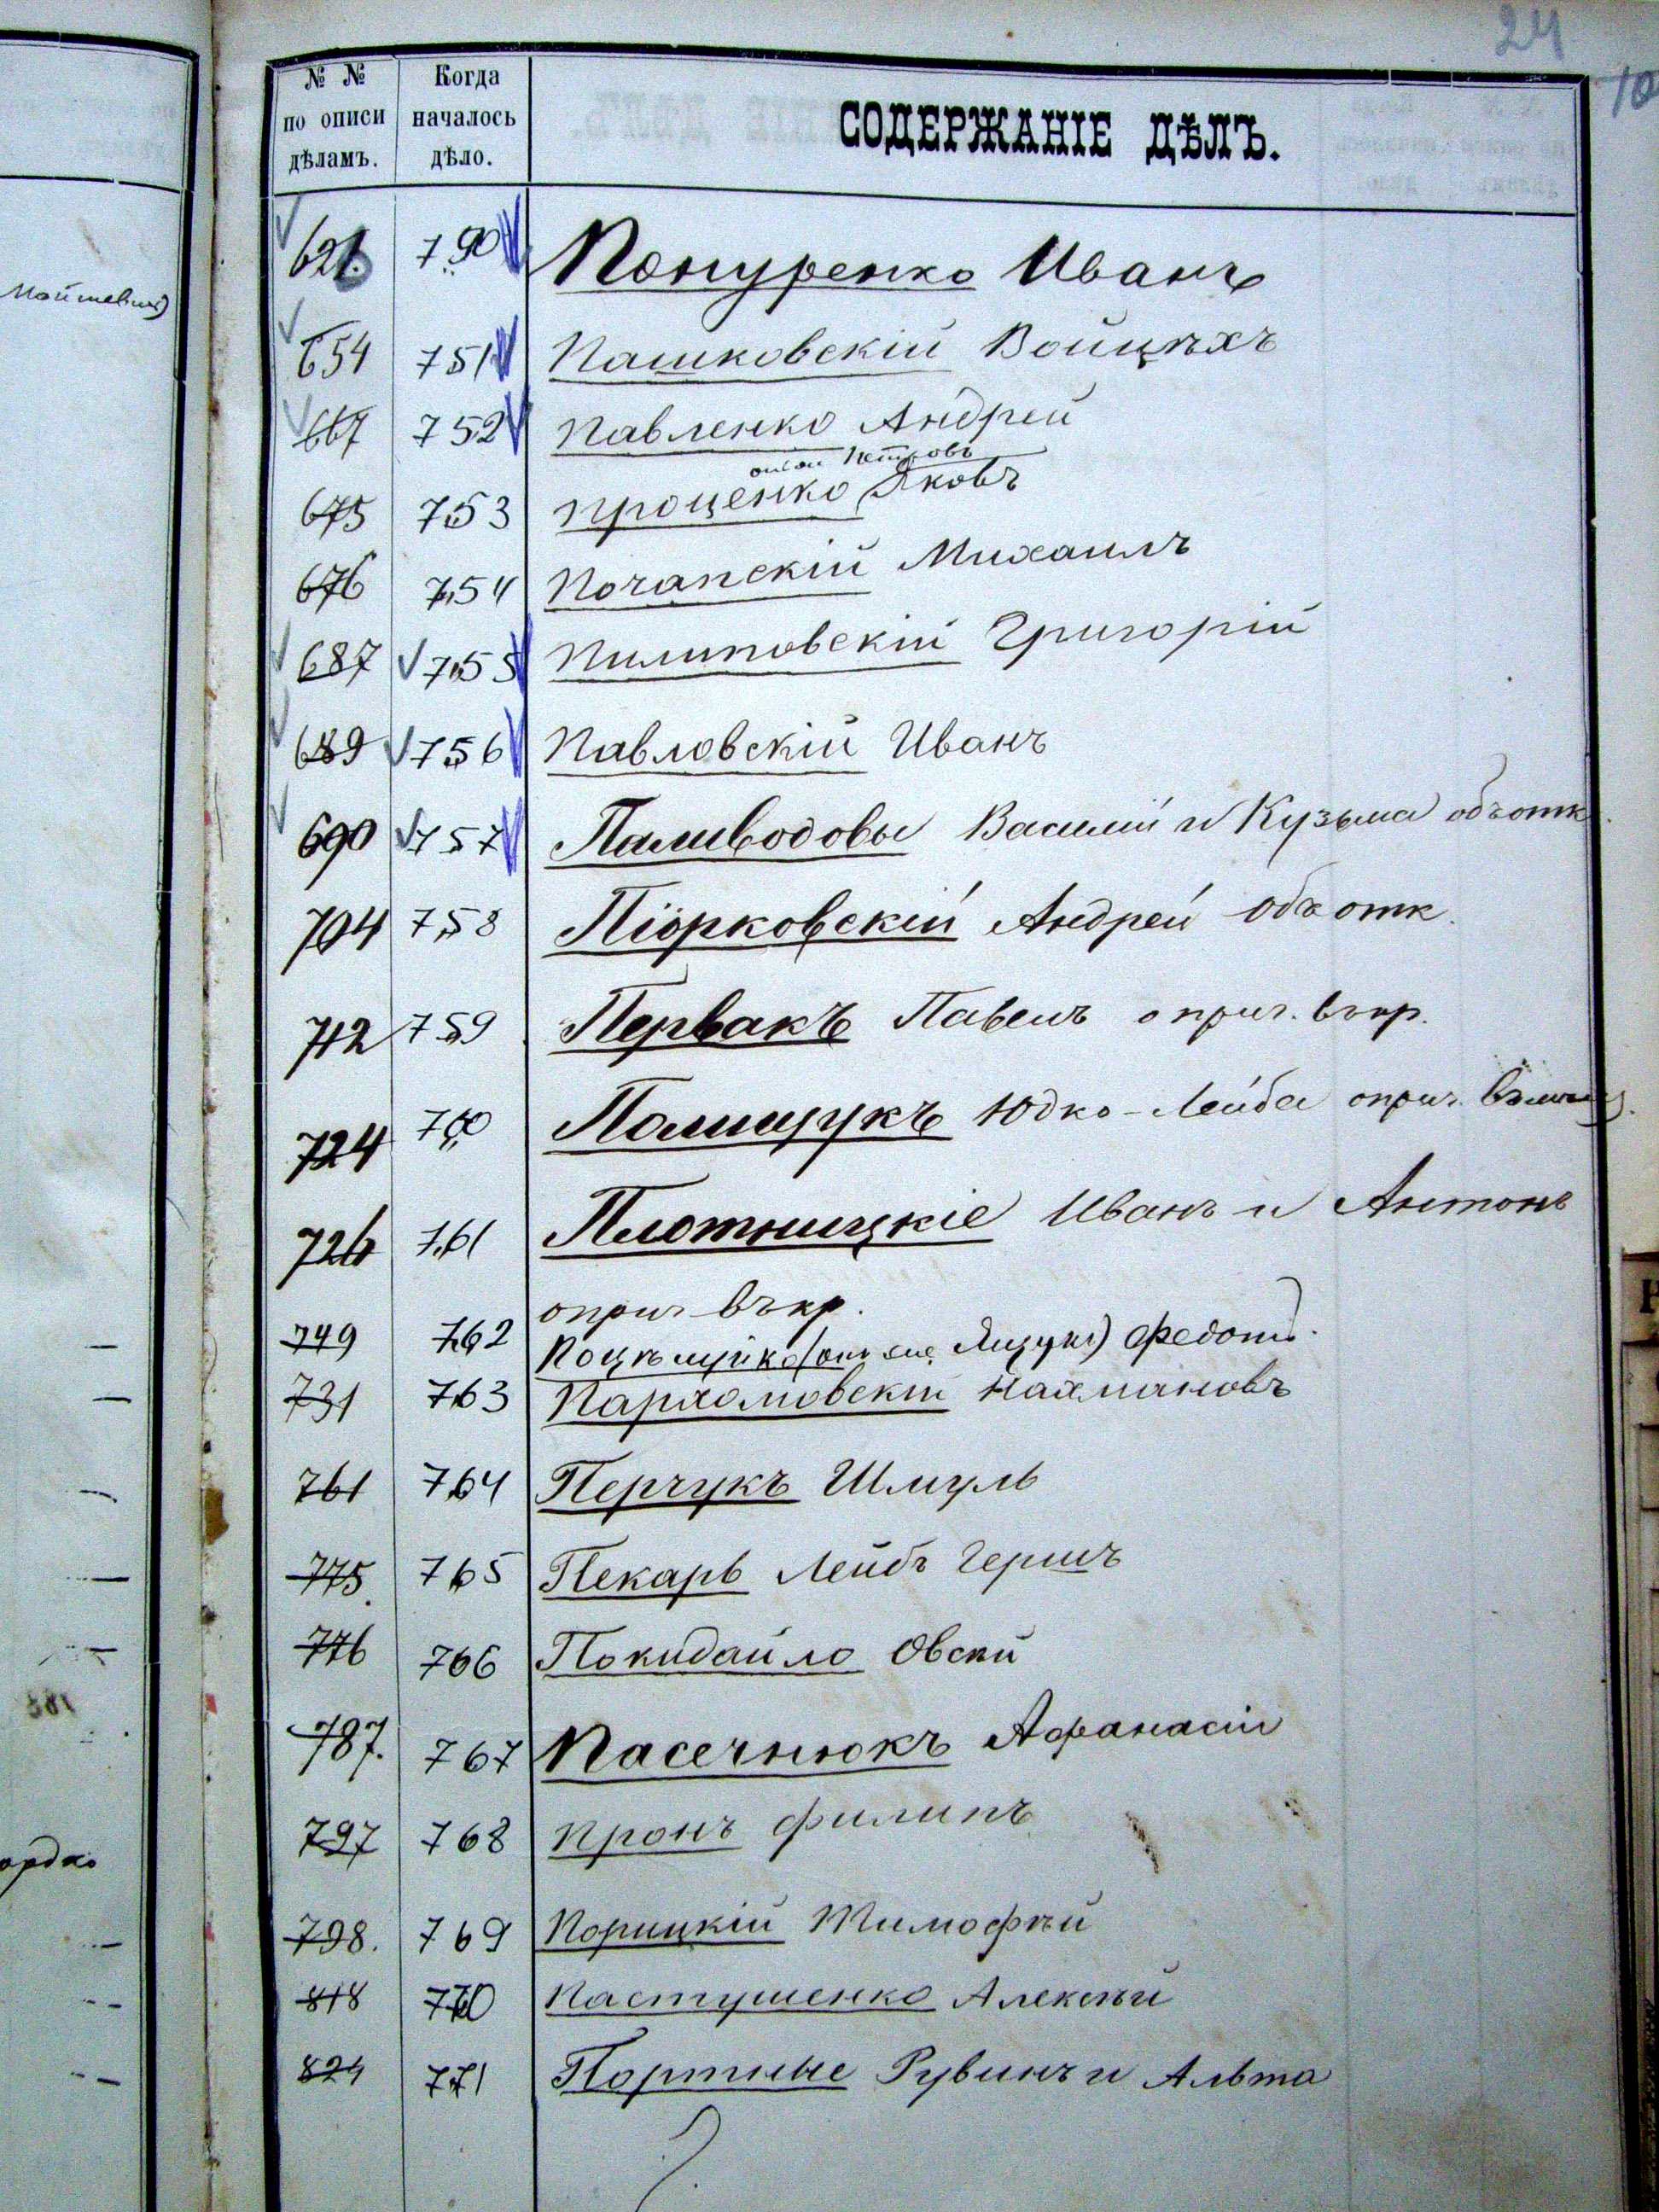 24
10
№ № по описи дѣламъ. Когда началось дѣло. СОДЕРЖАНІЕ ДѢЛЪ.
626 750 Понуренко Иванъ
654 751 Пашковскій Войцѣхъ
667 752 Павленко Андрей
онъ же Петровъ
675 753 Проценко Яковъ
676 754 Почапскій Михаилъ
687 755 Пилиповскій Григорій
689 756 Павловскій Иванъ
690 757 Паливодовы Василій и Кузьма объ отк.
704 758 Піорковскій Андрей объ отк.
712 759 Первакъ Павелъ о прич. въ кр.
724 760 Полищукъ Юдко-Лейба о прич.
726 761 Плотницкіе Иванъ и Антонъ
о прич въ кр.
749 762 (онъ же Ящукъ) Федотъ.
731 763 Пархомовскій Нахмановъ
761 764 Перчукъ Шмуль
775. 765 Пекарь Лейбъ Гершъ
776 766 Покидайло Овсей
787. 767 Пасечнюкъ Афанасій
797 768 Пронъ Филипъ
798. 769 Порицкій Тимофѣй
818 770 Пастушенко Алексѣй
824 771 Портные Рувинъ и Альта